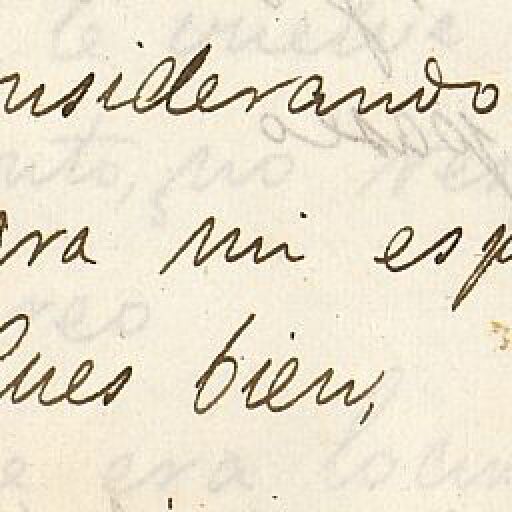 onsiderando
ara mi esp
Pues bien,